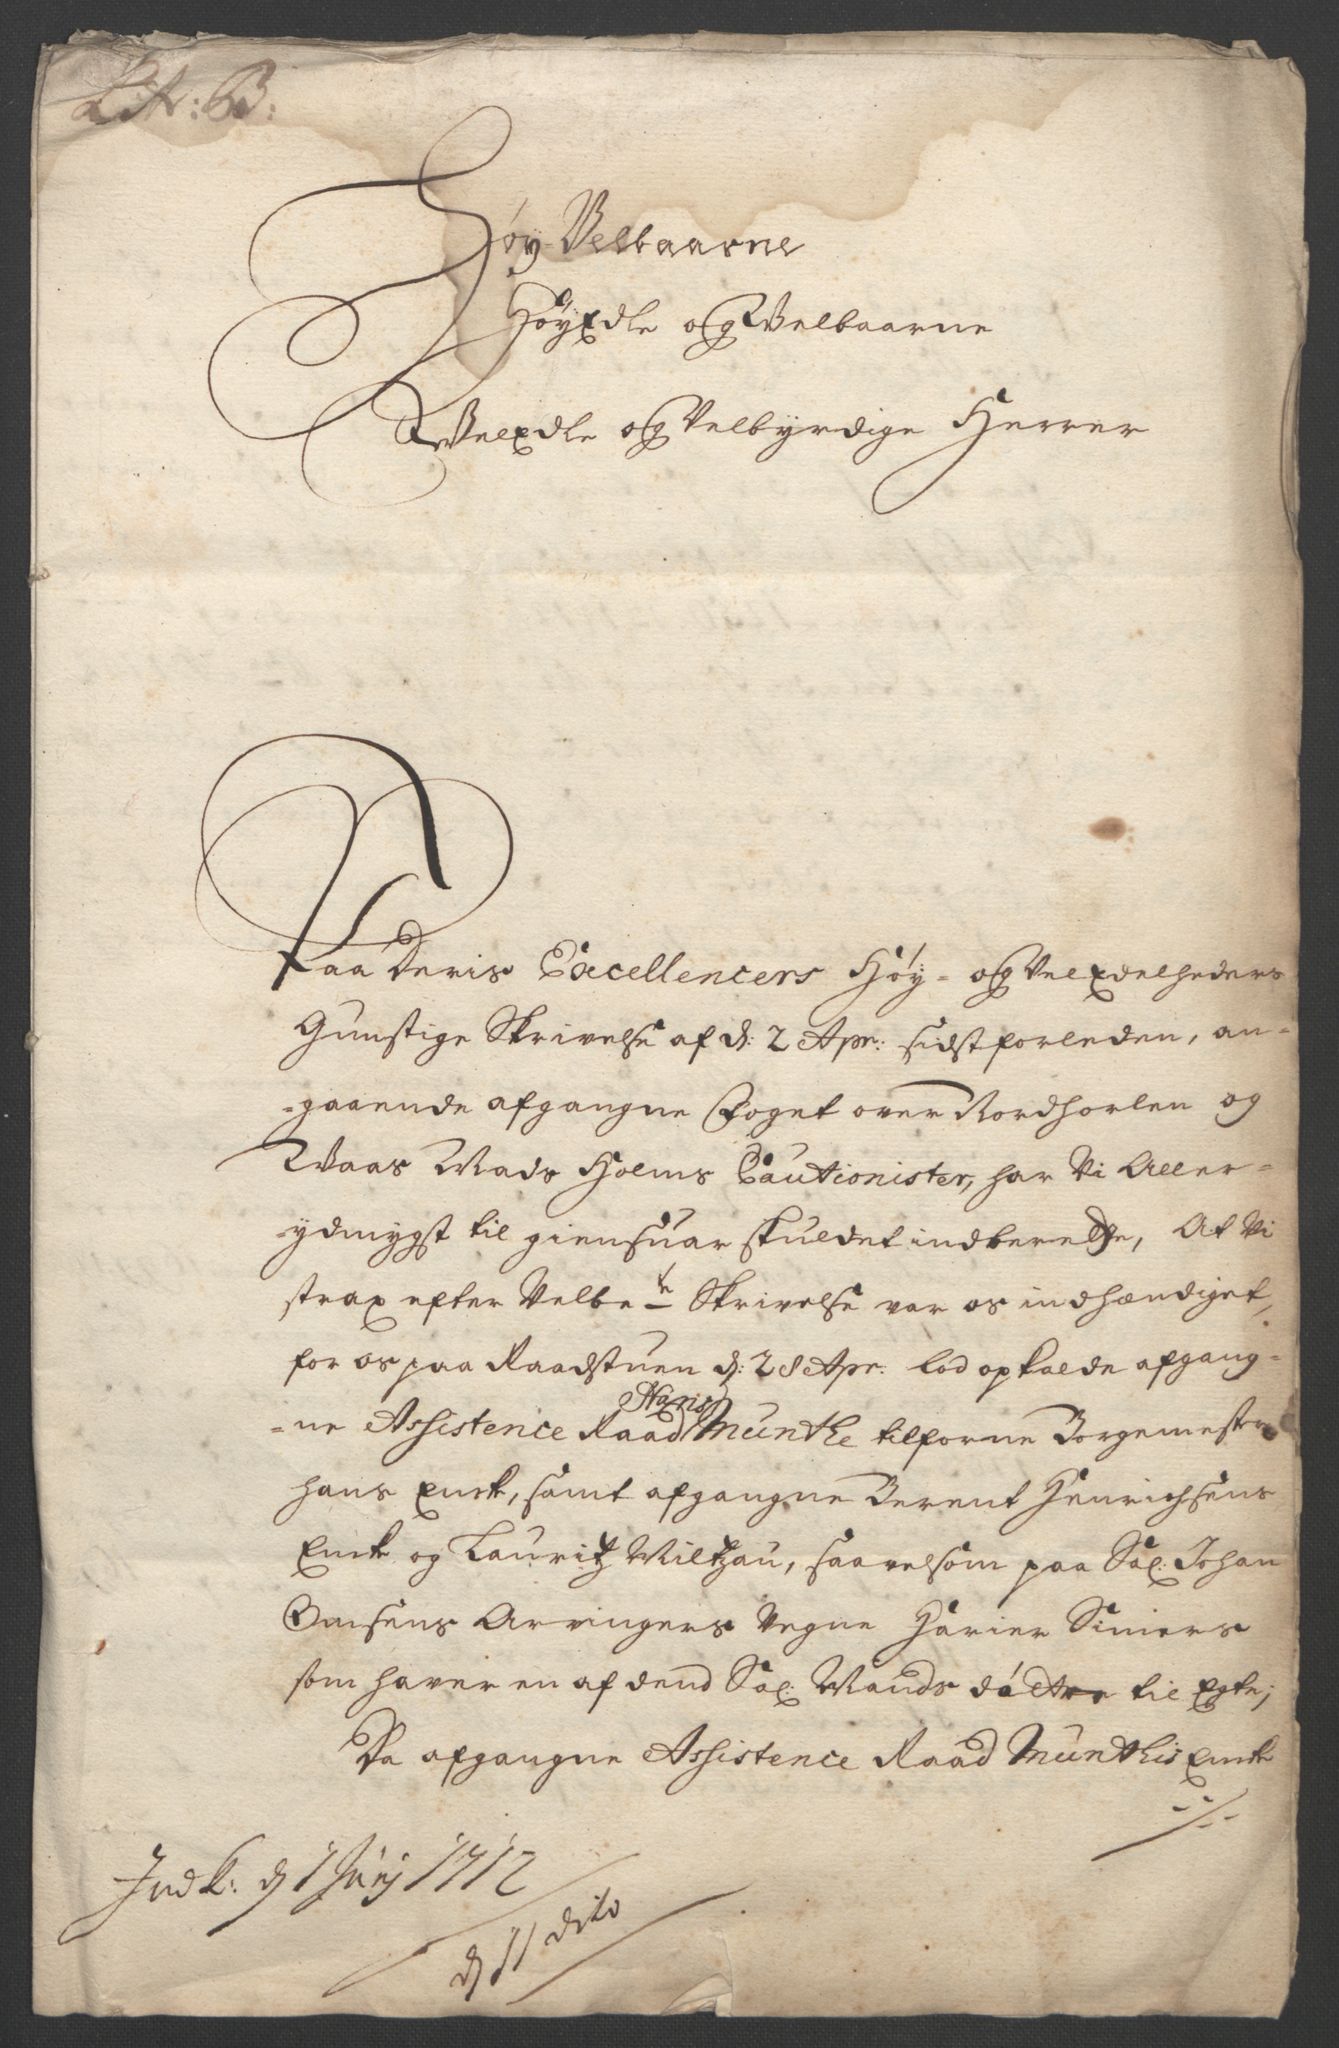 Lit: B:
Höy-Velbaarne
HöyEdle og Velbaarne
VelEdle og Velbyrdige Herrer
Paa Deris Excellencers Höy- og VelEdelheders
Gunstige Skrivelse af d: 2 Apr: sidstforleden, an-
-gaaende afgangne Foget over Nordhorlen og
Waas Mads Holms Cautionister, har Vi Aller-
-ydmygst til giensuar skuldet indberette, At Vi
strax efter Velbete Skrivelse var os indhændiget,
for os paa Raadstuen d: 28 Apr: lod opkalde afgang-
-ne Assistence Raad Hans Munthe tilforne Borgemester
hans Enche, samt afgangne Berent Henrichsens
Enche og Lauritz Miltzau, saavelsom paa Sal: Johan
Omsens Arvingers Vegne Harier Simers
som haver en af dend Sal: Mands döttre til Egte;
Da afgangne Assistence Raad Munthis Enche
-/-
Indk: d 1 Junj 1712
d 11 dito